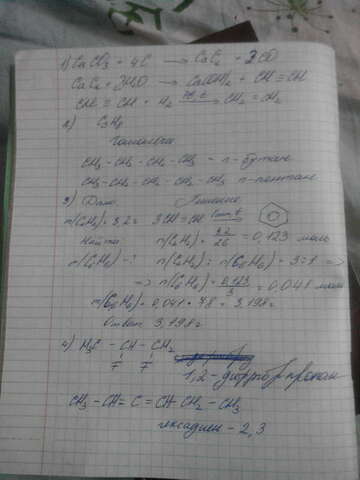 1) CaCO3 + 4C → CaC2 + 3CO
CaC2 + 2H2O → Ca(OH)2 + CH≡CH
CH≡CH + H2 → CH2=CH2
2) C3H8
Гомологи
CH3-CH2-CH2-CH3 - n-бутан
CH3-CH2-CH2-CH2-CH3 n-пентан
3) Дано: Решение
m(C2H2)=3,2г 3CH≡CH
Найти n(C2H2)= 3,2/26 = 0,123 моль
m(C6H6)-? n(C2H2) : n(C6H6) = 3:1 =>
=> n(C6H6) = 0,123/3 = 0,041 моль
m(C6H6)=0,041 * 78 = 3,198г
Ответ 3,198г
4) H3C - CH - CH2
F F
1,2-дифтор-пропан
CH3-CH=C=CH-CH2-CH3
гексадиен-2,3